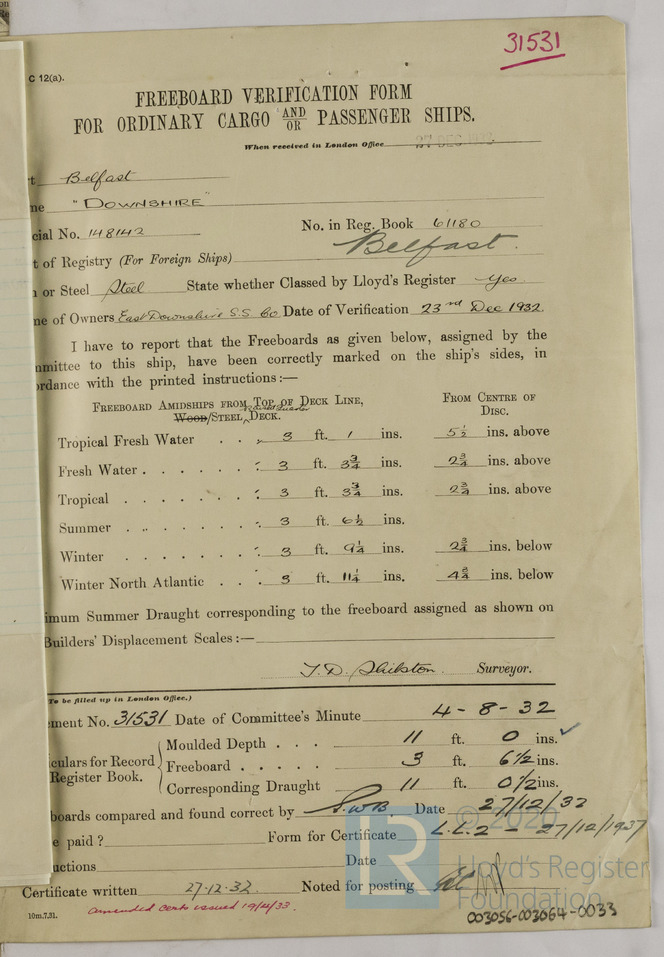 31531
C 12(a).
FREEBOARD VERIFICATION FORM
FOR ORDINARY CARGO AND/OR PASSENGER SHIPS.
When received in London Office
t Belfast
me "DOWNSHIRE"
cial No. 148142 No. in Reg. Book 61180
t of Registry (For Foreign Ships) Belfast.
n or Steel Steel State whether Classed by Lloyd's Register Yes
me of Owners East Downshire S.S. Co Date of Verification 23rd Dec 1932.
I have to report that the Freeboards as given below, assigned by the
mmittee to this ship, have been correctly marked on the ship's sides, in
ordance with the printed instructions:—
FREEBOARD AMIDSHIPS FROM TOP OF DECK LINE, FROM CENTRE OF
WOOD/STEEL DECK. DISC.
Tropical Fresh Water . . 3 ft. 1 ins. 5½ ins. above
Fresh Water . . . . . . 3 ft. 3¾ ins. 2¾ ins. above
Tropical . . . . . . . 3 ft. 3¾ ins. 2¾ ins. above
Summer . . . . . . . 3 ft. 6½ ins.
Winter . . . . . . . 3 ft. 9¼ ins. 2¾ ins. below
Winter North Atlantic . . . 3 ft. 11¼ ins. 4¾ ins. below
imum Summer Draught corresponding to the freeboard assigned as shown on
Builders' Displacement Scales:—
Surveyor.
To be filled up in London Office.)
ment No. 31531 Date of Committee's Minute 4-8-32
Moulded Depth . . . 11 ft. 0 ins.
culars for Record Freeboard . . . . . 3 ft. 6½ ins.
Register Book. Corresponding Draught 11 ft. 0½ ins.
boards compared and found correct by Date 27/12/32
e paid? Form for Certificate L.L.2 - 27/12/1937
uctions Date
Certificate written 27-12-32. Noted for posting
10m.7.31. amended certs issued 19/4/33.
© 2020
Lloyd's Register
Foundation
003056-003064-0033